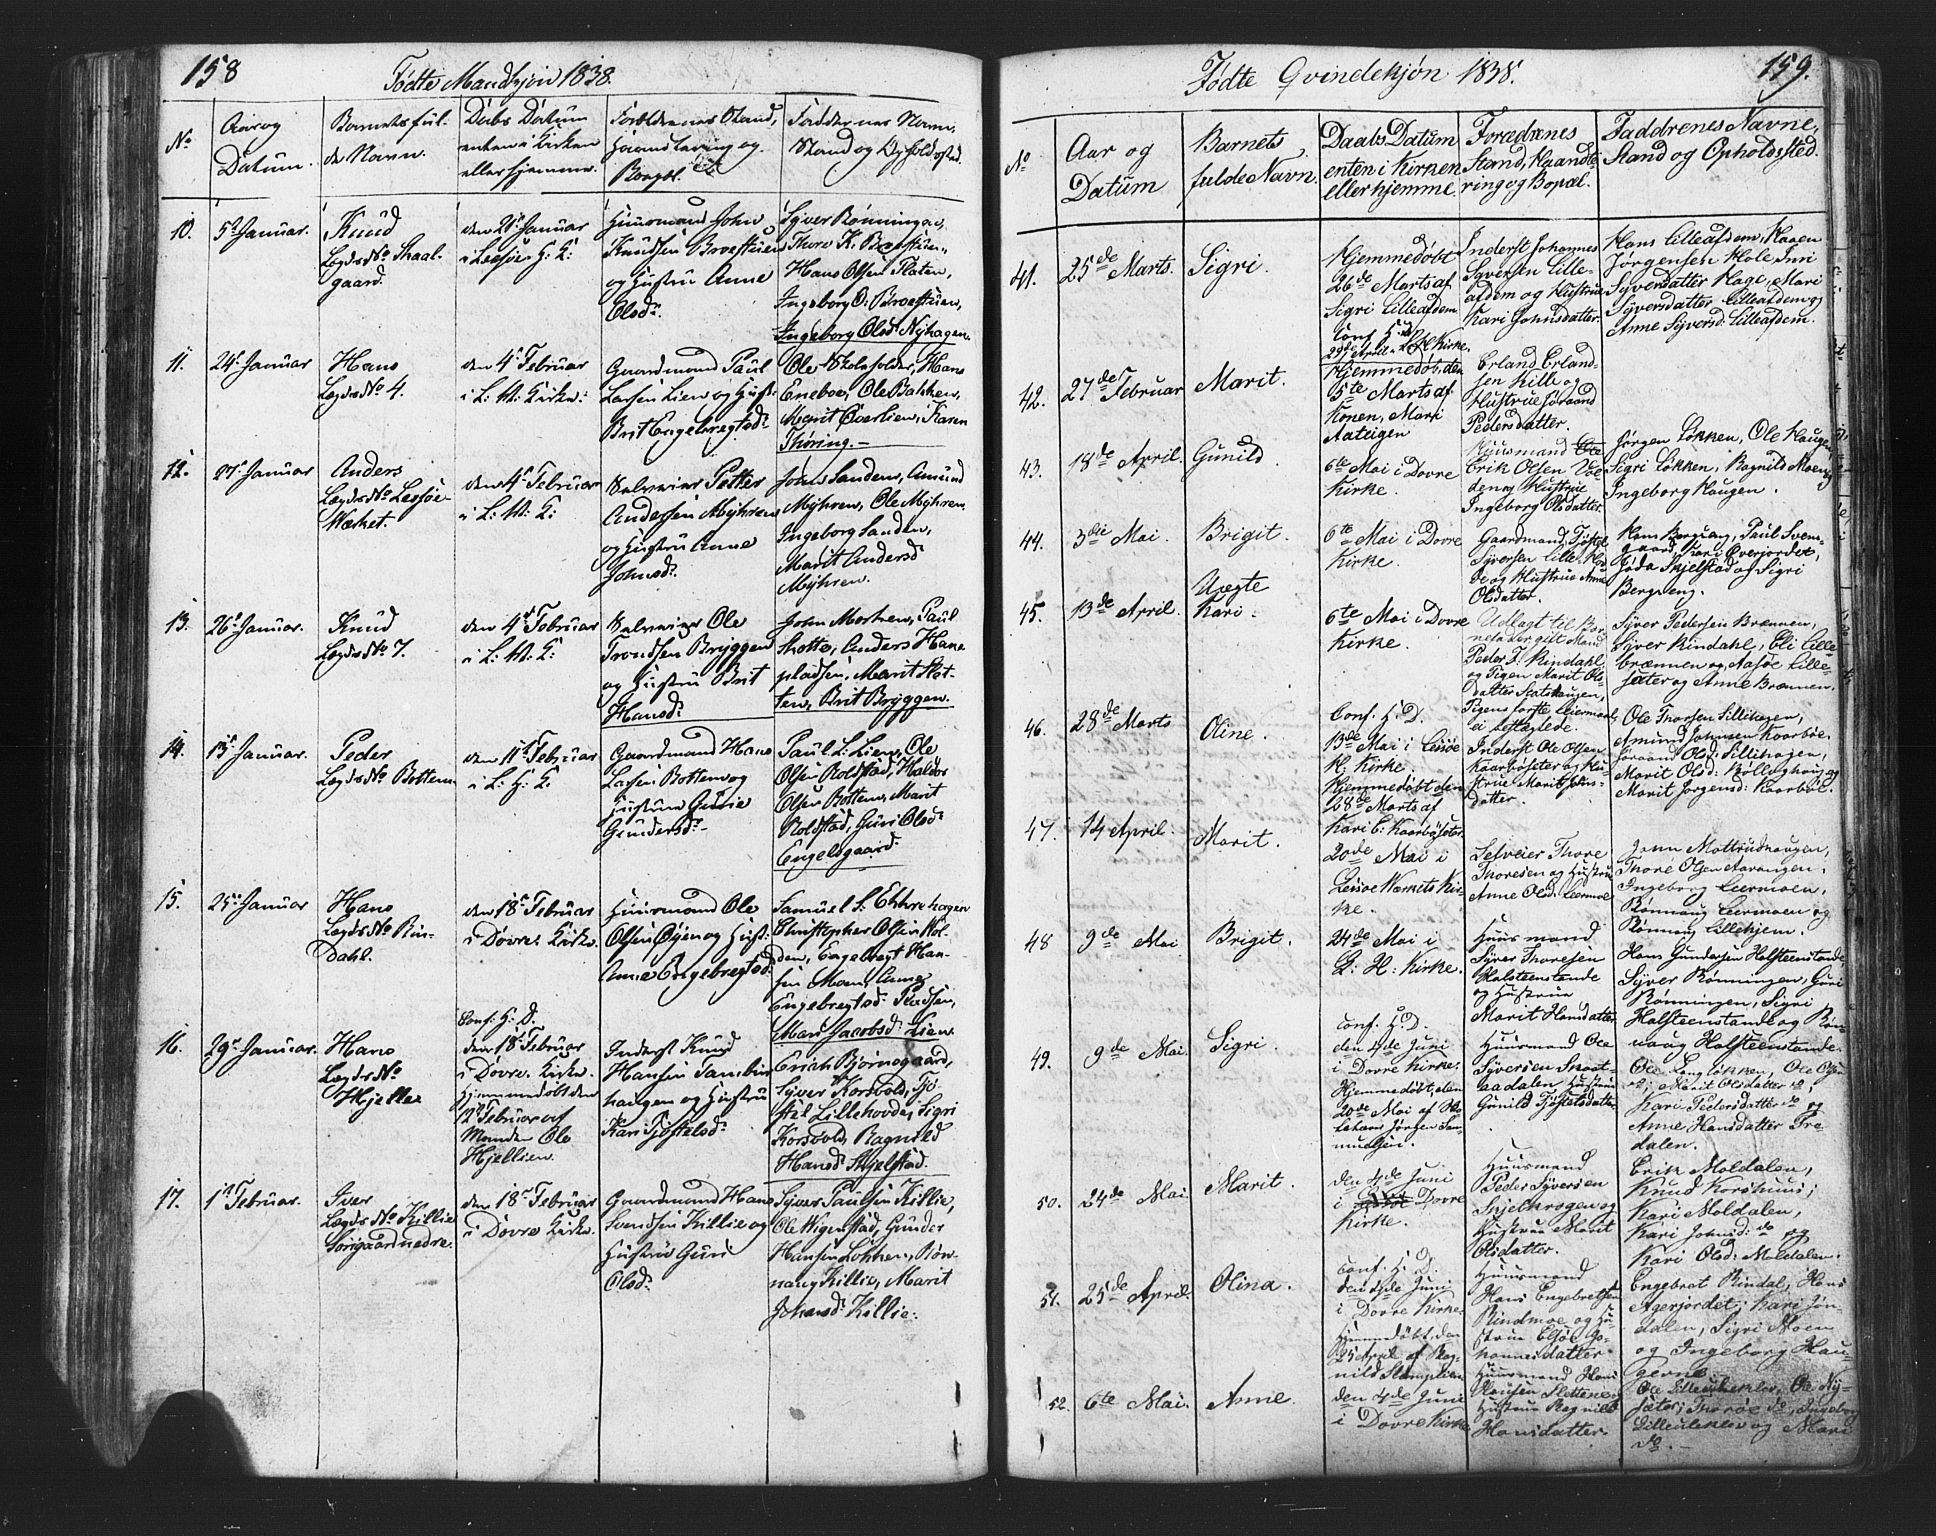 158
Fødte Mandkjøn 1838.
No
Aar og
Datum.
Barnets ful-
de Navn.
Daabs Datum
enten i Kirken
eller hjemme.
Forældrenes Stand,
Haandtering og
Boepæl.
Faddernes Navn,
Stand og Opholdssted.
10.
5te Januar.
Knud
Lægds No Skaal-
gaard.
den
Januar
i Lessøe H: K:
Huusmand John
Knudsen Broestuen
og Hustru Anne
Olsdr.
Syver Rønningen,
Thore K. Broestuen,
Hans Olsen Platen,
Ingeborg O: Broestuen,
Ingeborg Olsd: Nyhagen.
11.
24de Januar
Hans
Lægds No 4.
den 4de Februar
i L: W: Kirke.
Gaardmand Paul
Larsen Lien og Hust:
Brit Engebregtsdr
Ole Skoleholder, Hans
Eneboe, Ole Bakken,
Marit Øverlien, Karen
Thøring.
12.
27de Januar
Anders
Lægds No Lessøe
Værket.
den 4de Februar
i L: W: K:
Selveier Petter
Andersen Myhren
og Hustru Anne
Johnsdr.
John Sanden, Amund
Myhren, Ole Myhren,
Ingeborg Sanden,
Marit Andersd:
Myhren.
13.
26de Januar.
Knud
Lægds No 7.
den 4de Februar
i L: W: K:
Selveier Ole
Trondsen Bryggen
og Hustru Brit
Hansdr.
John Morken, Paul
Stotte, Anders Hane
pladsen, Marit Stot-
ten, Brit Bryggen.
14.
15de Januar.
Peder
Lægds No Bottem.
den 11te Februar
i L: H: K:
Gaardmand Hans
Larsen Bottem og
Hustru Gunie
Gundersdr
Paul L: Lien, Ole
Olsen Roldstad, Haldor
Olsen Bottem, Marit
Roldstad, Guri Olsd:
Engelsgaard.
15.
25de Januar
Hans
Lægds No Rin-
dahl.
den 18de Februar
i Dovre Kirke.
Huusmand Ole
Olsen Øyen og Hust:
Anne Engebregtsd:
Samuel S. Ekkrehagen
Christopher Olsen Mol-
den, Engebregt Han-
sen Moen, Anne
Engebregtsd: Pladsen,
Mari Jacobsd: Lien.
16.
29de Januar.
Hans
Lægds No
Hjelle
Conf. H. D.
den 18de Februar
i Dovre Kirke.
Hjemmedøbt den
12te Februar af
Manden Ole
Hjellien.
Inderst Knud
Hansen
haugen og Hustru
Kari Tjøstelsdr.
Erich Bjørnsgaard,
Syver Korsvold, Tjø-
stel Lillehovde, Sigri
Korsvold, Ragnild
Hansd: Skjelstad.
17.
1ste Februar.
Iver
Lægds No Killie
Sørigaard nedre.
den 18de Februar
i Dovre Kirke.
Gaardmand Hans
Svendsen Killie og
Hustrue Guri
Olsdr.
Syver Paulsen Killie,
Ole Wigenstad, Gunder
Hansen Løkken, Røn-
naug Killie, Marit
Johansd: Killie.
159.
Fødte Qvindekjøn 1838.
No
Aar og
Datum
Barnets
fulde Navn.
Daabs Datum
enten i Kirken
eller hjemme
Forædrenes
Stand, Haandte
ring og Bopæl.
Faddrenes Navne,
Stand og Opholdssted.
41.
25de Marts.
Sigri.
Hjemmedøbt
26de Marts af
Sigri Lilleafdem
Conf. H. D.
29de April i L. H. Kirke.
Inderst Johannes
Syversen Lille-
afdem og Hustrue
Kari Johnsdatter.
Hans Lilleafdem, Haagen
Jørgensen Hole, Inri
Syversdatter Hage, Mari
Syversdatter Lilleafdem og
Anne Syversd: Lilleafdem.
42.
27de Februar
Marit.
Hjemmedøb. den
5te Marts af
Konen, Mari
Aateigen
Erland Erland-
sen Kille og
Hustrue Jøraand
Pedersdatter.
43.
18de April.
Gunild
6te Mai i Dovre
Kirke.
Huusmand
Erik Olsen
den og Hustrue
Ingeborg Olsdatter.
Jørgen Løkken, Ole Haugen
Sigri Løkken, Ragnild Moen og
Ingeborg Haugen.
44.
3die Mai.
Brigit.
6te Mai i Dovre
Kirke.
Gaardmand Tøstel
Syversen Lille Hov-
de og Hustrue Anne
Olsdatter.
Hans Bergseng, Paul Svens-
gaard, Kari Overjordet,
Jøda Skjelstad og Sigri
Bergseng.
45.
13de April.
Uægte
Kari.
6te Mai i Dovre
Kirke.
Udlagt til Bar-
nefader gift Mand
Peder I. Rindahl
og Pigen Marit Ols-
datter Slatshaugen,
Pigens første Leiermaal,
ei befalede.
Syver Pedersen Brænnen,
Syver Rindahl, Eli Lille-
brænnen og Aasøe Lille-
sæter og Anne Brænnen.
46.
28de Marts
Oline.
Conf. H. D.
13de Mai i Lessøe
H. Kirke
Hjemmedøbt den
28de Marts af
Kari E: Kaarbøsæter.
Inderst Ole Olsen
Kaarbøsæter og Hu-
strue Marit Jøns-
datter.
Ole Thorsen Lillehagen,
Amund Johnsen Kaarbøe,
Jøraand Olsd: Lillehagen,
Marit Olsd: Kollinghoug og
Marit Jørgensd: Kaarbøe.
47.
14 April.
Marit.
20de Mai i
Lessøe Værkets Kir-
ke.
Selveier Thore
Thoresen og Hustrue
Anne Olsd: Leermoe
John Mottrudhaugen,
Thore Olsen Aavangen,
Ingeborg Leermoen,
Rønnaug Leermoen og
Rønnaug Lillehjem.
48
9de Mai
Brigit.
24de Mai i
L: H: Kirke.
Huusmand
Syver Thoresen
Holsteenstande
og Hustrue
Marit Hansdatter
Hans Gundersen Holsteenstande
Syver Rønningen, Guri
Rønningen, Sigri
Holsteenstande og Røn-
naug Holsteenstande.
49.
9de Mai.
Sigri.
Conf. H. D.
den 4de Juni
i Dovre Kirke.
Hjemmedøbt, den
20de Mai af Ho-
lekarl Jørgen Sam-
muelsen.
Huusmand Ole
Syversen Skaat-
aadalen, Hustrue
Gunild Tjøstelsdatter
Ole Langløkken, Ole Olsen
do; Marit Olsdatter do;
Kari Pedersdatter do og
Anne Hansdatter Fre
dalen.
50.
24de Mai
Marit.
den 4de Juni
i Dovre
Kirke.
Huusmand
Peder Syversen
Skjelkrogen og
Hustrue Marit
Olsdatter.
Erik Moldalen,
Knud Korshuus;
Kari Moldalen,
Kari Johnsd: do og
Kari Olsd: Moldalen.
51.
25de April.
Olina.
Conf. H. D.
den 4de Juni
i Dovre Kirke.
Hjemmedøbt, den
25 April af Rag-
nild Stamplien
Huusmand
Hans Engebretsen
Rindmoe og Hu-
strue Elsøe Jo-
hannesdatter.
Engebret Rindal, Hans
Agerjordet; Kari Jøn
dalen, Sigri Moen
og Ingeborg Hau-
gerne.
52.
6te Mai.
Anne.
den 4de Juni
i Dovre Kirke
Huusmand Hans
Hansen Sletten
Hustrue Ragnild
Hansdatter.
Ole Lilleulekleiv, Ole Ny-
sæter; Thorøe do, Ingeborg
Lilleulekleiv og Mari
do.